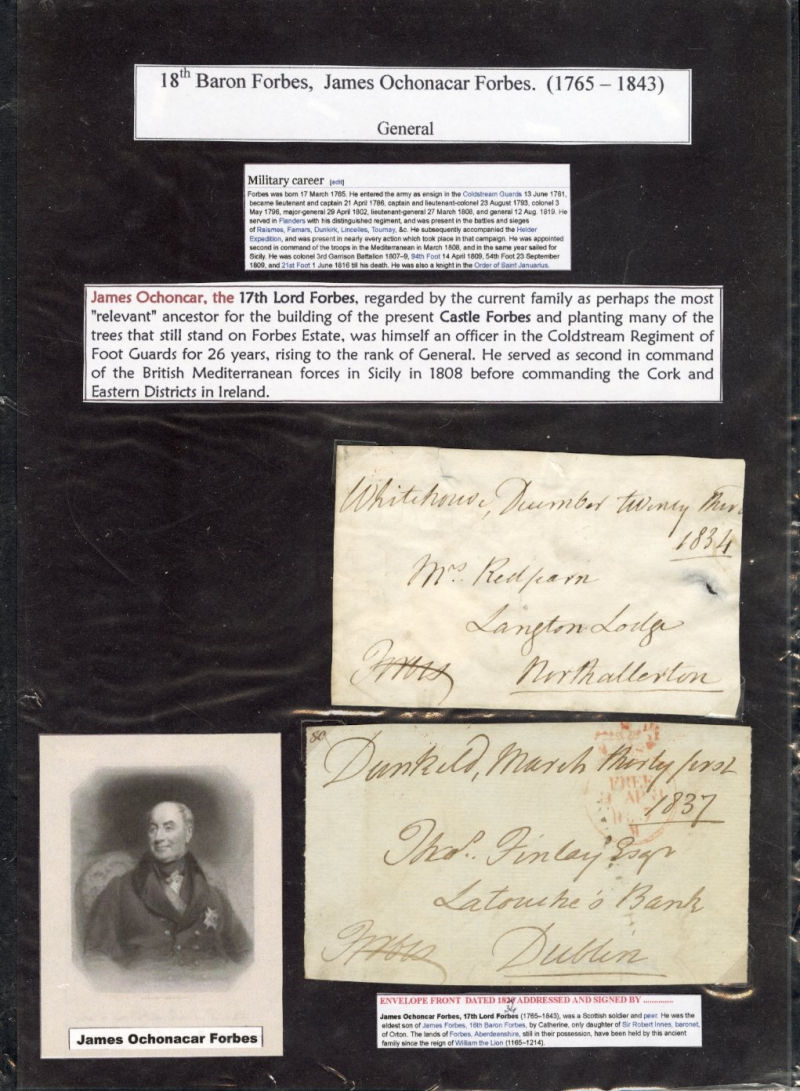 18th Baron Forbes, James Ochonacar Forbes. (1765 – 1843)
General
Military career [edit]
Forbes was born 17 March 1765. He entered the army as ensign in the Coldstream Guards 13 June 1781,
became lieutenant and captain 21 April 1786, captain and lieutenant-colonel 23 August 1793, colonel 3
May 1796, major-general 29 April 1802, lieutenant-general 27 March 1808, and general 12 Aug. 1819. He
served in Flanders with his distinguished regiment, and was present in the battles and sieges
of Raismes, Famars, Dunkirk, Lincelles, Tournay, &c. He subsequently accompanied the Helder
Expedition, and was present in nearly every action which took place in that campaign. He was appointed
second in command of the troops in the Mediterranean in March 1808, and in the same year sailed for
Sicily. He was colonel 3rd Garrison Battalion 1807–9, 94th Foot 14 April 1809, 54th Foot 23 September
1809, and 21st Foot 1 June 1816 till his death. He was also a knight in the Order of Saint Januarius.
James Ochoncar, the 17th Lord Forbes, regarded by the current family as perhaps the most
"relevant" ancestor for the building of the present Castle Forbes and planting many of the
trees that still stand on Forbes Estate, was himself an officer in the Coldstream Regiment of
Foot Guards for 26 years, rising to the rank of General. He served as second in command
of the British Mediterranean forces in Sicily in 1808 before commanding the Cork and
Eastern Districts in Ireland.
Whitehouse, December twenty
1834
Mrs. Redparn
Langton Lodge
Forbes Northallerton
80
Dunkeld, March thirty first
FREE
1837
Thos. Finlay Esqr
Latouche's Bank
Forbes Dublin
James Ochonacar Forbes
ENVELOPE FRONT DATED ADDRESSED AND SIGNED BY ..............
34
James Ochoncar Forbes, 17th Lord Forbes (1765–1843), was a Scottish soldier and peer. He was the
eldest son of James Forbes, 16th Baron Forbes, by Catherine, only daughter of Sir Robert Innes, baronet,
of Orton. The lands of Forbes, Aberdeenshire, still in their possession, have been held by this ancient
family since the reign of William the Lion (1165–1214).